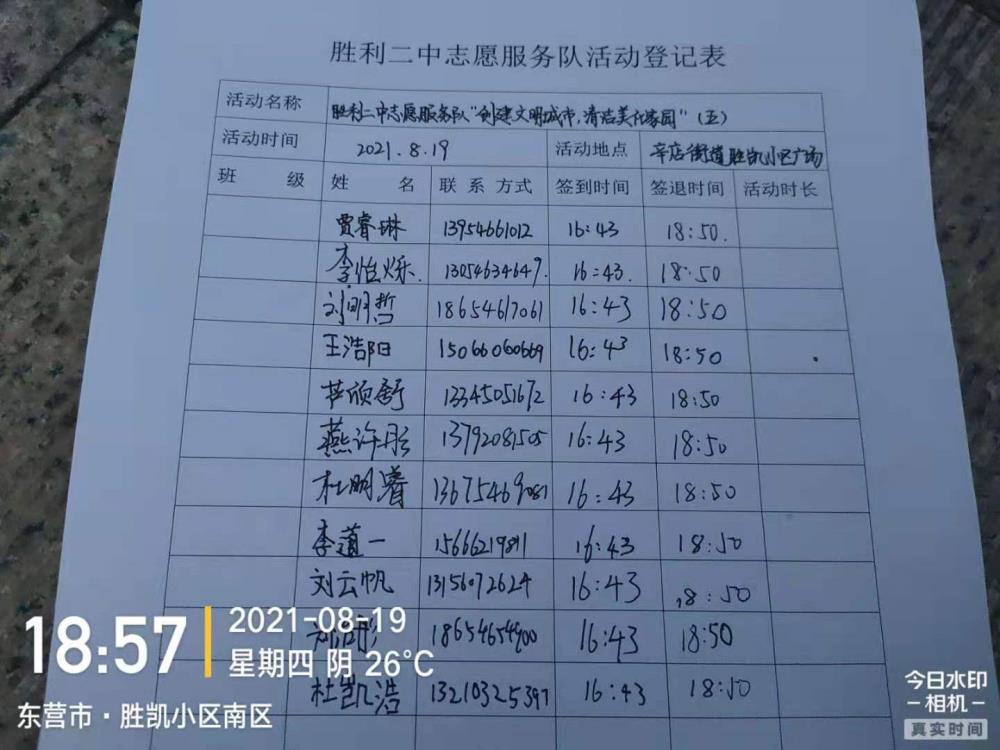 胜利二中志愿服务队活动登记表
活动名称 胜利二中志愿服务队“创建文明城市,清洁美化家园”(五)
活动时间 2021.8.19 活动地点 辛店街道胜凯小区广场
班 级 姓 名 联 系 方式 签到时间 签退时间 活动时长
贾睿琳 13954661012 16:43 18:50.
李怡烁. 13054634647. 16:43. 18:50
刘明哲 18654617061 16:43 18:50
王浩阳 15066060669 16:43 18:50
欣舒 13345051672 16:43 18:50
燕许彤 13792081505 16:43 18:50
杜明睿 13675469081 16:43 18:50
李道一 15666219811 16:43 18:50
刘云帆 13156072624 16:43 18:50
18654654900 16:43 18:50
杜凯浩 13210325397 16:43 18:50
18:57
2021-08-19
星期四 阴 26℃
东营市·胜凯小区南区
今日水印
-相机-
真实时间